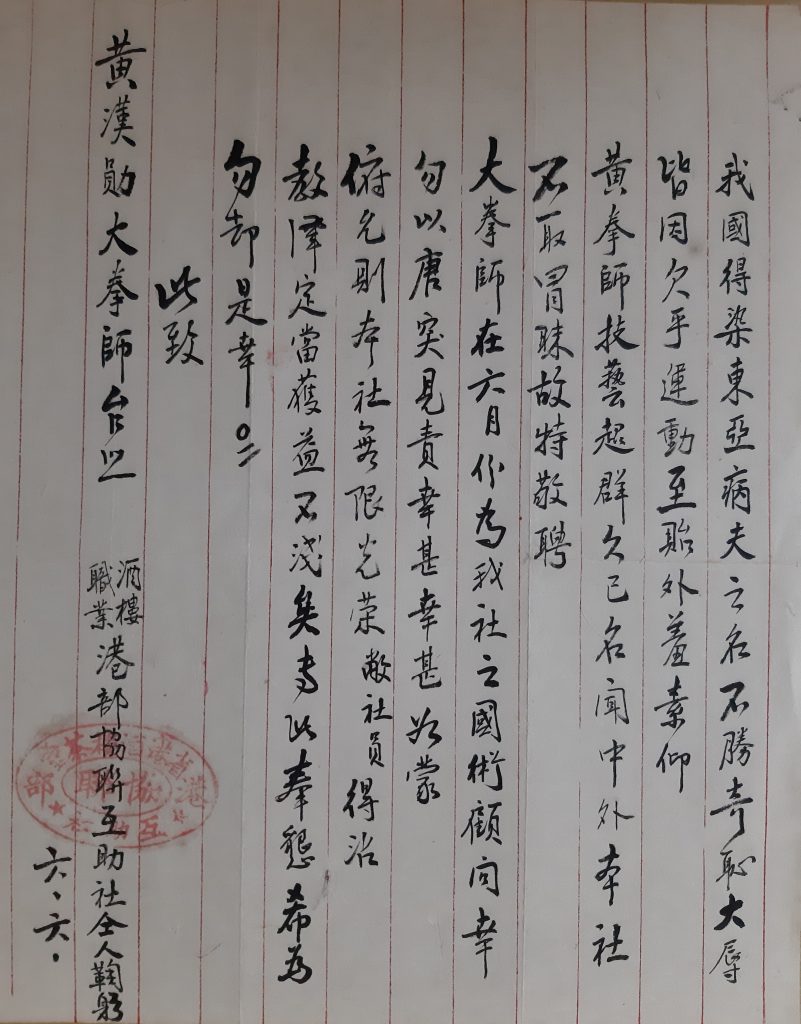 我國得染東亞病夫之名不勝奇恥大辱
皆因欠乎運動至貽外羞素仰
黃拳師技藝超群久已名聞中外本社
不取冒昧故特敬聘
大拳師在六月份為我社之國術顧问幸
勿以唐突見責幸甚幸甚如蒙
俯允則本社無限光荣敝社員得沾
教澤定當獲益不淺矣专此奉懇希为
勿却是幸。
此致
黃漢勛大拳師台照
酒樓
職業
港部協聯互助社仝人鞠躬
六、六、